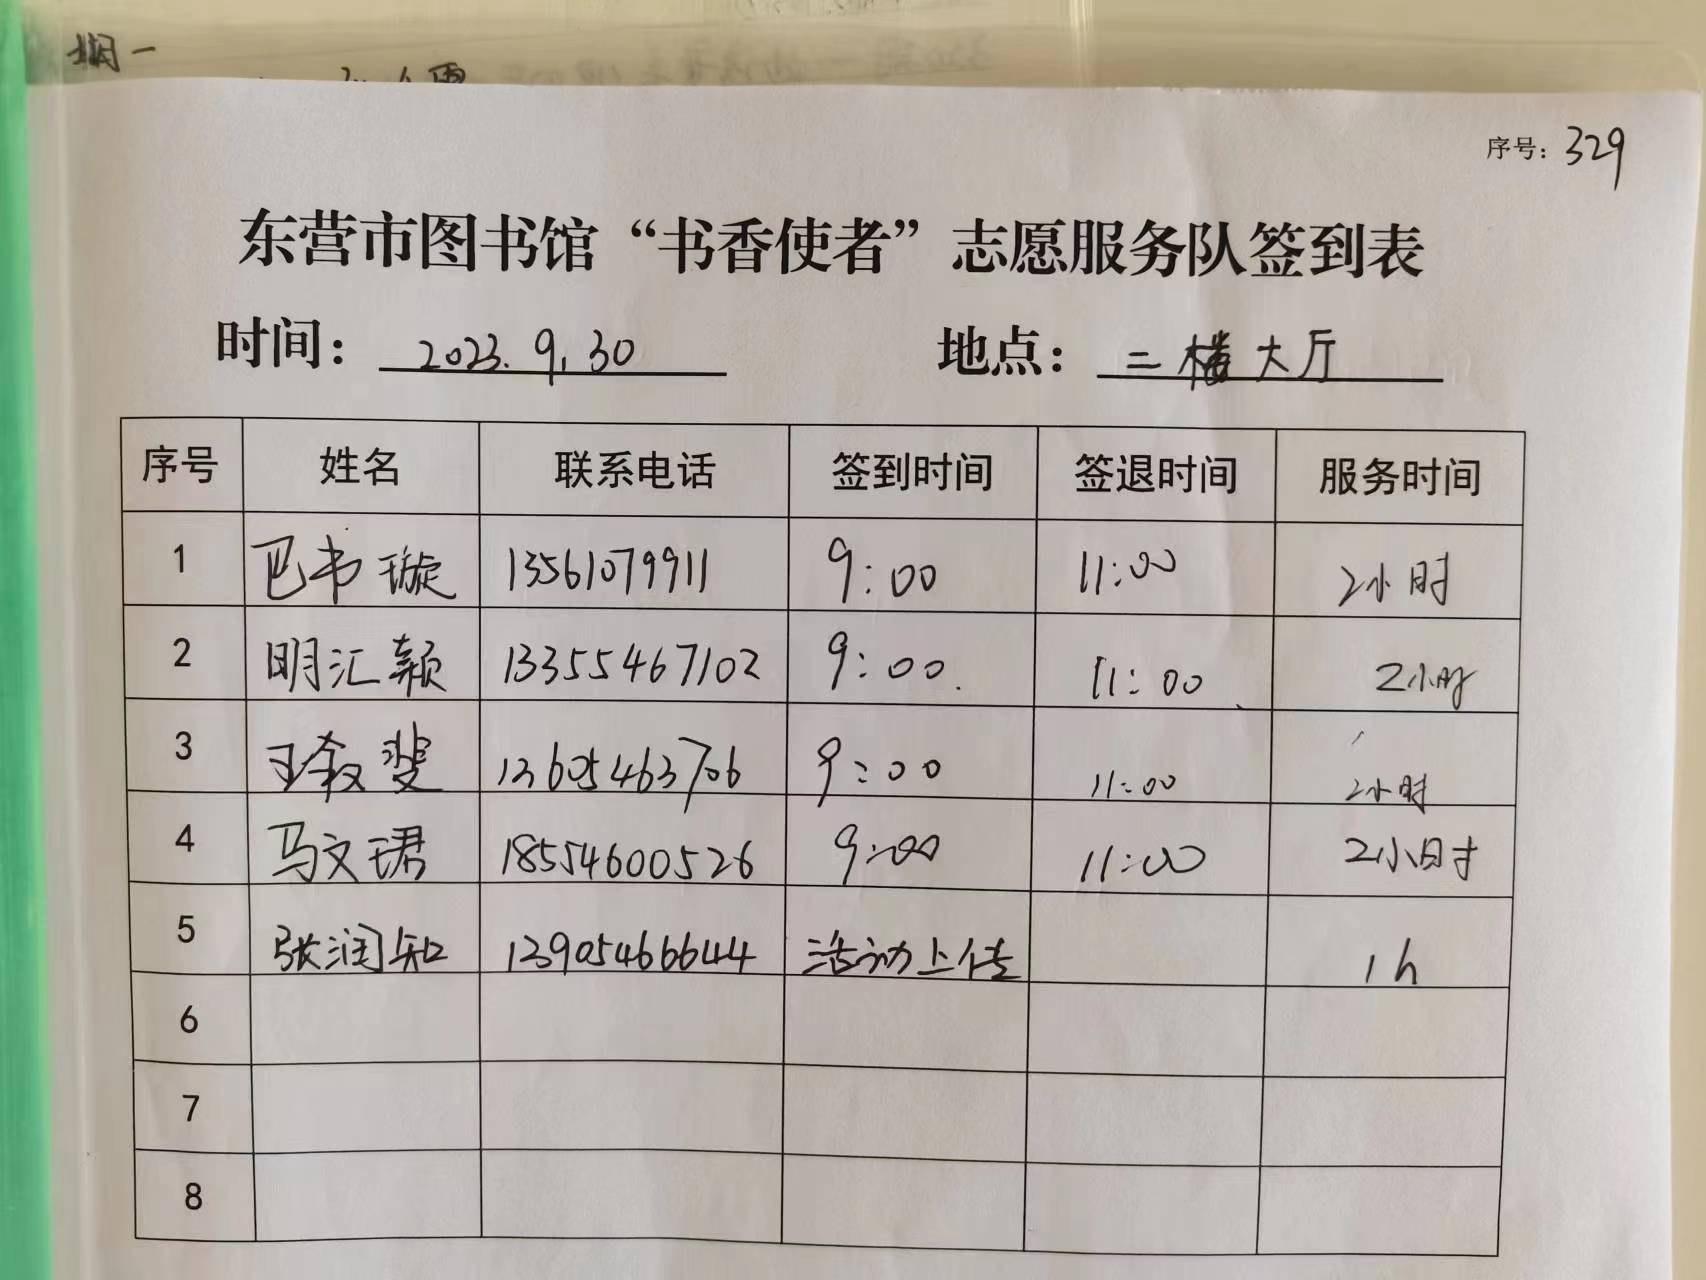 期一
序号：329
东营市图书馆“书香使者”志愿服务队签到表
时间：2023.9.30 地点：二楼大厅
序号 姓名 联系电话 签到时间 签退时间 服务时间
1 巴书璇 13561079911 9:00 11:00 2小时
2 明汇颖 13355467102 9:00. 11:00 2小时
3 王叙斐 13605463706 9:00 11:00 2小时
4 马文珺 18554600526 9:00 11:00 2小时
5 张润知 13905466644 活动上传 1h
6
7
8